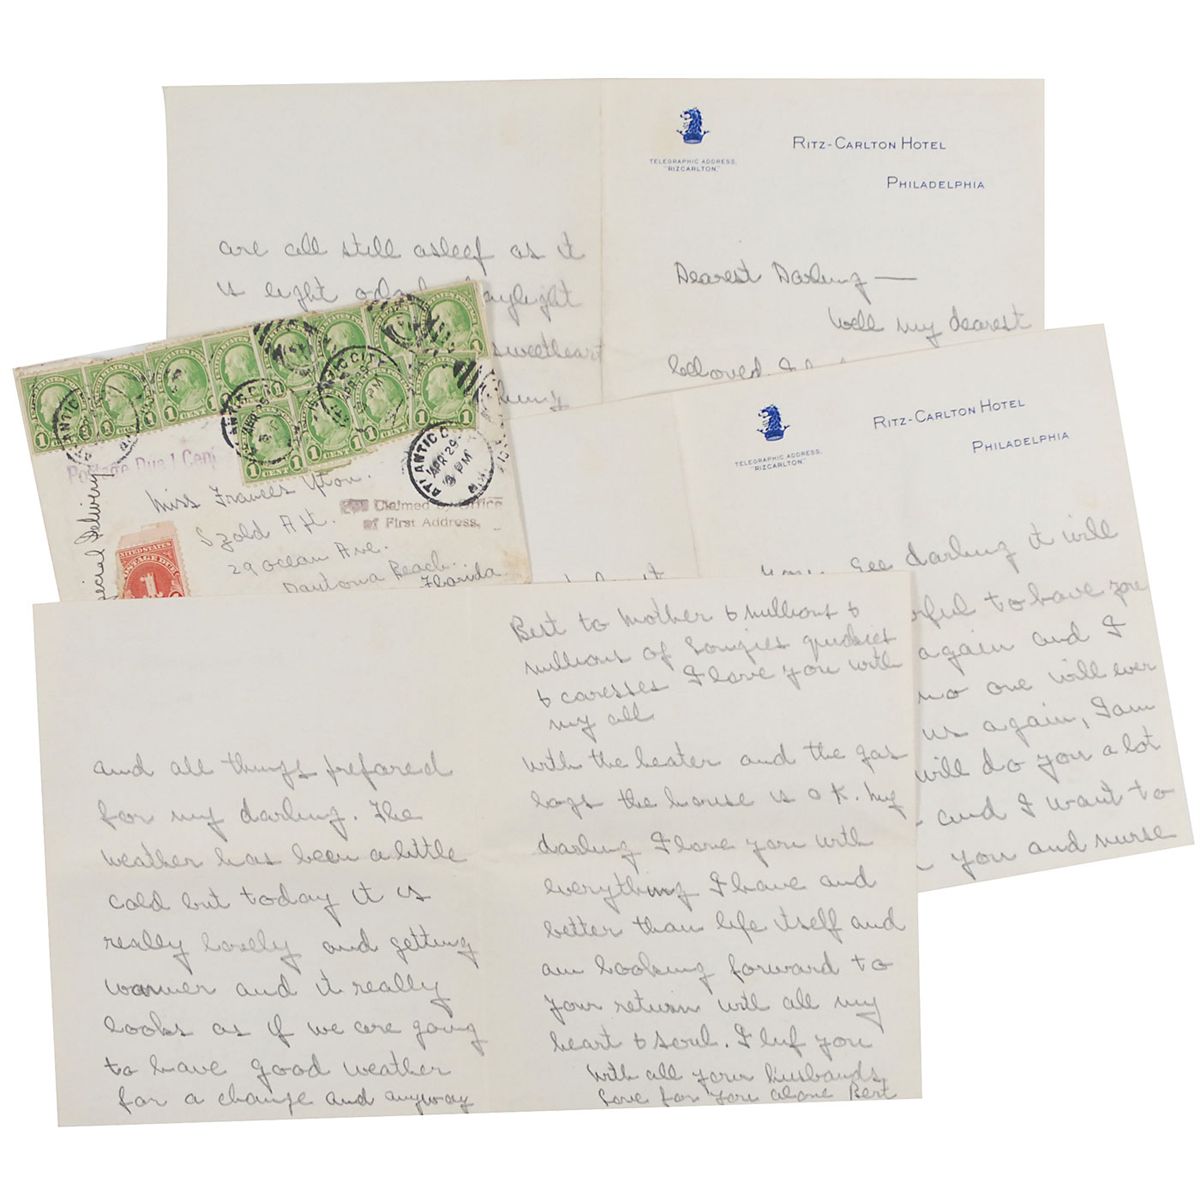 are all still asleep as it
is eight daylight
sweetheart
TELEGRAPHIC ADDRESS,
"RIZCARLTON."
RITZ-CARLTON HOTEL
PHILADELPHIA
Dearest Darling —
Well my dearest
beloved I
UNITED STATES POSTAGE
1 CENT 1
ATLANTIC CITY
APR 29
PM
N.J.
Postage Due 1 Cent
Special Delivery
Miss Frances Upton.
Szold Apt.
29 Ocean Ave.
Daytona Beach.
Florida.
Claimed Office
of First Address.
UNITED STATES
POSTAGE DUE
TELEGRAPHIC ADDRESS,
"RIZCARLTON."
RITZ-CARLTON HOTEL
PHILADELPHIA
you. See darling it will
to have you
again and I
no one will ever
us again, I am
will do you a lot
and I want to
you and nurse
and all things prepared
for my darling. The
weather has been a little
cold but today it is
really lovely and getting
warmer and it really
looks as if we are going
to have good weather
for a change and anyway
Best to Mother & millions &
millions of
& caresses I love you with
my all
with the heater and the gas
logs the house is o K. My
darling I love you with
everything I have and
better than life itself and
am looking forward to
your return with all my
heart & soul. I luf you
With all your husbands
Love for you alone Bert